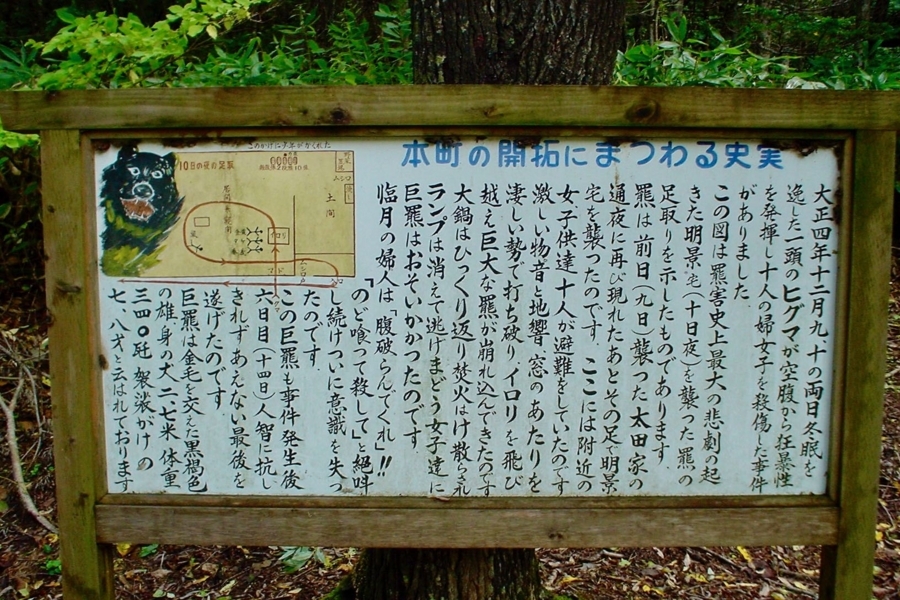 本町の開拓にまつわる史実
大正四年十二月九、十の両日冬眠を
逸した一頭のヒグマが空腹から狂暴性
を発揮し十人の婦女子を殺傷した事件
がありました
この図は羆害史上最大の悲劇の起
きた明景宅(十日夜)を襲った羆の
足取りを示したものであります
羆は前日(九日)襲った太田家の
通夜に再び現れたあとその足で明景
宅を襲ったのです ここには附近の
女子供達十人が避難をしていたのです
激しい物音と地響 窓のあたりを
凄しい勢で打ち破り イロリを飛び
越え巨大な羆が崩れ込んできたのです
大鍋はひっくり返り焚火はけ散らされ
ランプは消えて逃げまどう女子達に
巨羆はおそいかかったのです
臨月の婦人は「腹破らんでくれ」!!
「のど喰って殺して」と絶叫
し続けついに意識を失っ
たのです
この巨羆も事件発生後
六日目(十四日)人智に抗し
きれずあえない最後を
遂げたのです
巨羆は金毛を交えた黒褐色
の雄、身の丈二、七米、体重
三四〇瓩 袈裟がけの
七、八才と云はれております
このかげに少年がかくれた
10日の夜の足取
土間